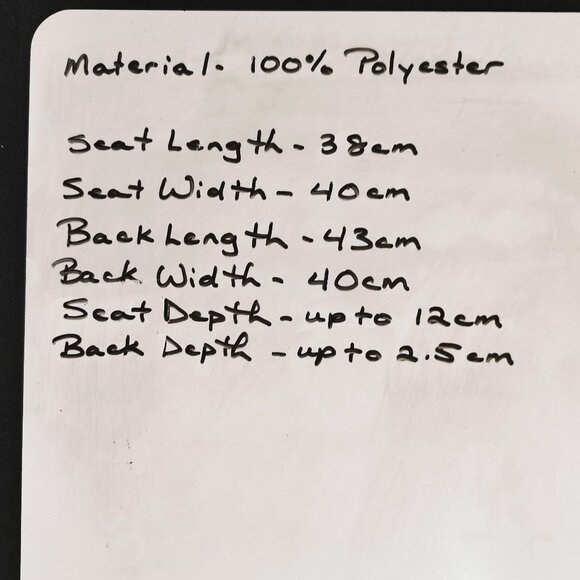 Material. 100% Polyester
Seat Length - 38cm
Seat Width - 40cm
Back Length - 43cm
Back Width - 40cm
Seat Depth - up to 12cm
Back Depth - up to 2.5cm